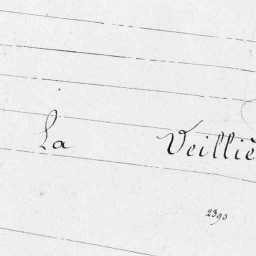 La Veilliè
2390